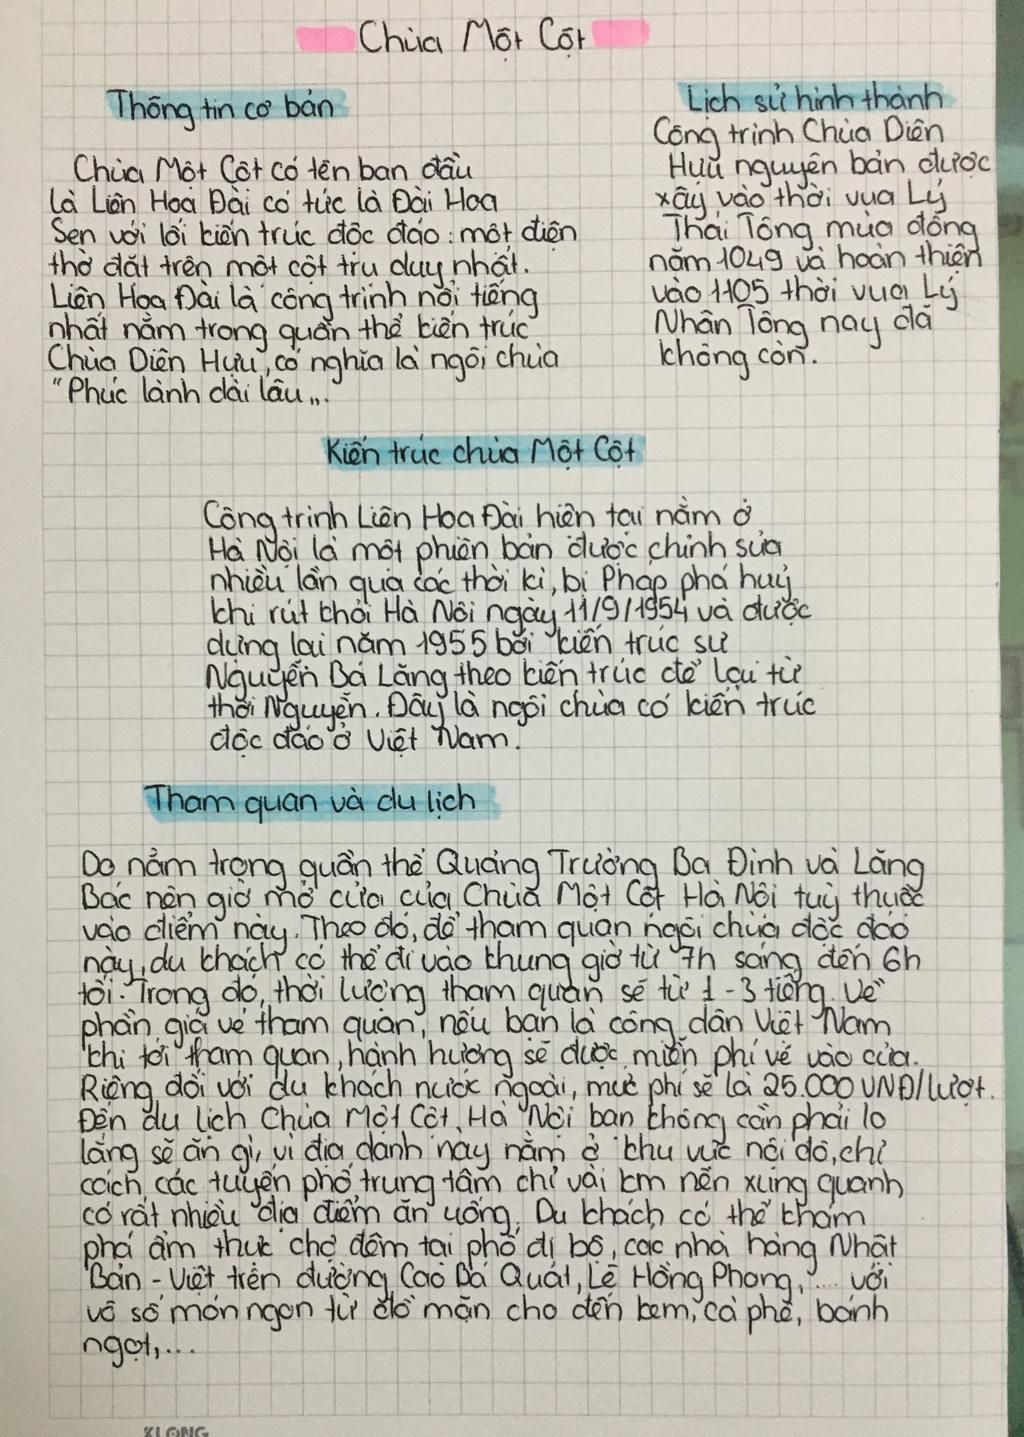 Chùa Một Cột
Thông tin cơ bản
Chùa Một Cột có tên ban đầu
là Liên Hoa Đài có tức là Đài Hoa
Sen với lối kiến trúc độc đáo: một điện
thờ đặt trên một cột trụ duy nhất.
Liên Hoa Đài là công trình nổi tiếng
nhất nằm trong quần thể kiến trúc
Chùa Diên Hựu, có nghĩa là ngôi chùa
"Phúc lành dài lâu".
Lịch sử hình thành
Công trình Chùa Diên
Hựu nguyên bản được
xây vào thời vua Lý
Thái Tông mùa đông
năm 1049 và hoàn thiện
vào 1105 thời vua Lý
Nhân Tông nay đã
không còn.
Kiến trúc chùa Một Cột
Công trình Liên Hoa Đài hiện tại nằm ở
Hà Nội là một phiên bản được chỉnh sửa
nhiều lần qua các thời kì, bị Pháp phá huỷ
khi rút khỏi Hà Nội ngày 11/9/1954 và được
dựng lại năm 1955 bởi kiến trúc sư
Nguyễn Bá Lăng theo kiến trúc để lại từ
thời Nguyễn. Đây là ngôi chùa có kiến trúc
độc đáo ở Việt Nam.
Tham quan và du lịch
Do nằm trong quần thể Quảng Trường Ba Đình và Lăng
Bác nên giờ mở cửa của Chùa Một Cột Hà Nội tuỳ thuộc
vào điểm này. Theo đó, để tham quan ngôi chùa độc đáo
này, du khách có thể đi vào khung giờ từ 7h sáng đến 6h
tối. Trong đó, thời lượng tham quan sẽ từ 1-3 tiếng. Về
phần giá vé tham quan, nếu bạn là công dân Việt Nam
khi tới tham quan, hành hương sẽ được miễn phí vé vào cửa.
Riêng đối với du khách nước ngoài, mức phí sẽ là 25.000 VNĐ/lượt.
Đến du lịch Chùa Một Cột, Hà Nội bạn không cần phải lo
lắng sẽ ăn gì, vì địa danh này nằm ở khu vực nội đô, chỉ
cách các tuyến phố trung tâm chỉ vài km nên xung quanh
có rất nhiều địa điểm ăn uống. Du khách có thể khám
phá ẩm thực chợ đêm tại phố đi bộ, các nhà hàng Nhật
Bản - Việt trên đường Cao Bá Quát, Lê Hồng Phong,... với
vô số món ngon từ đồ mặn cho đến kem, cà phê, bánh
ngọt,...
KLONG